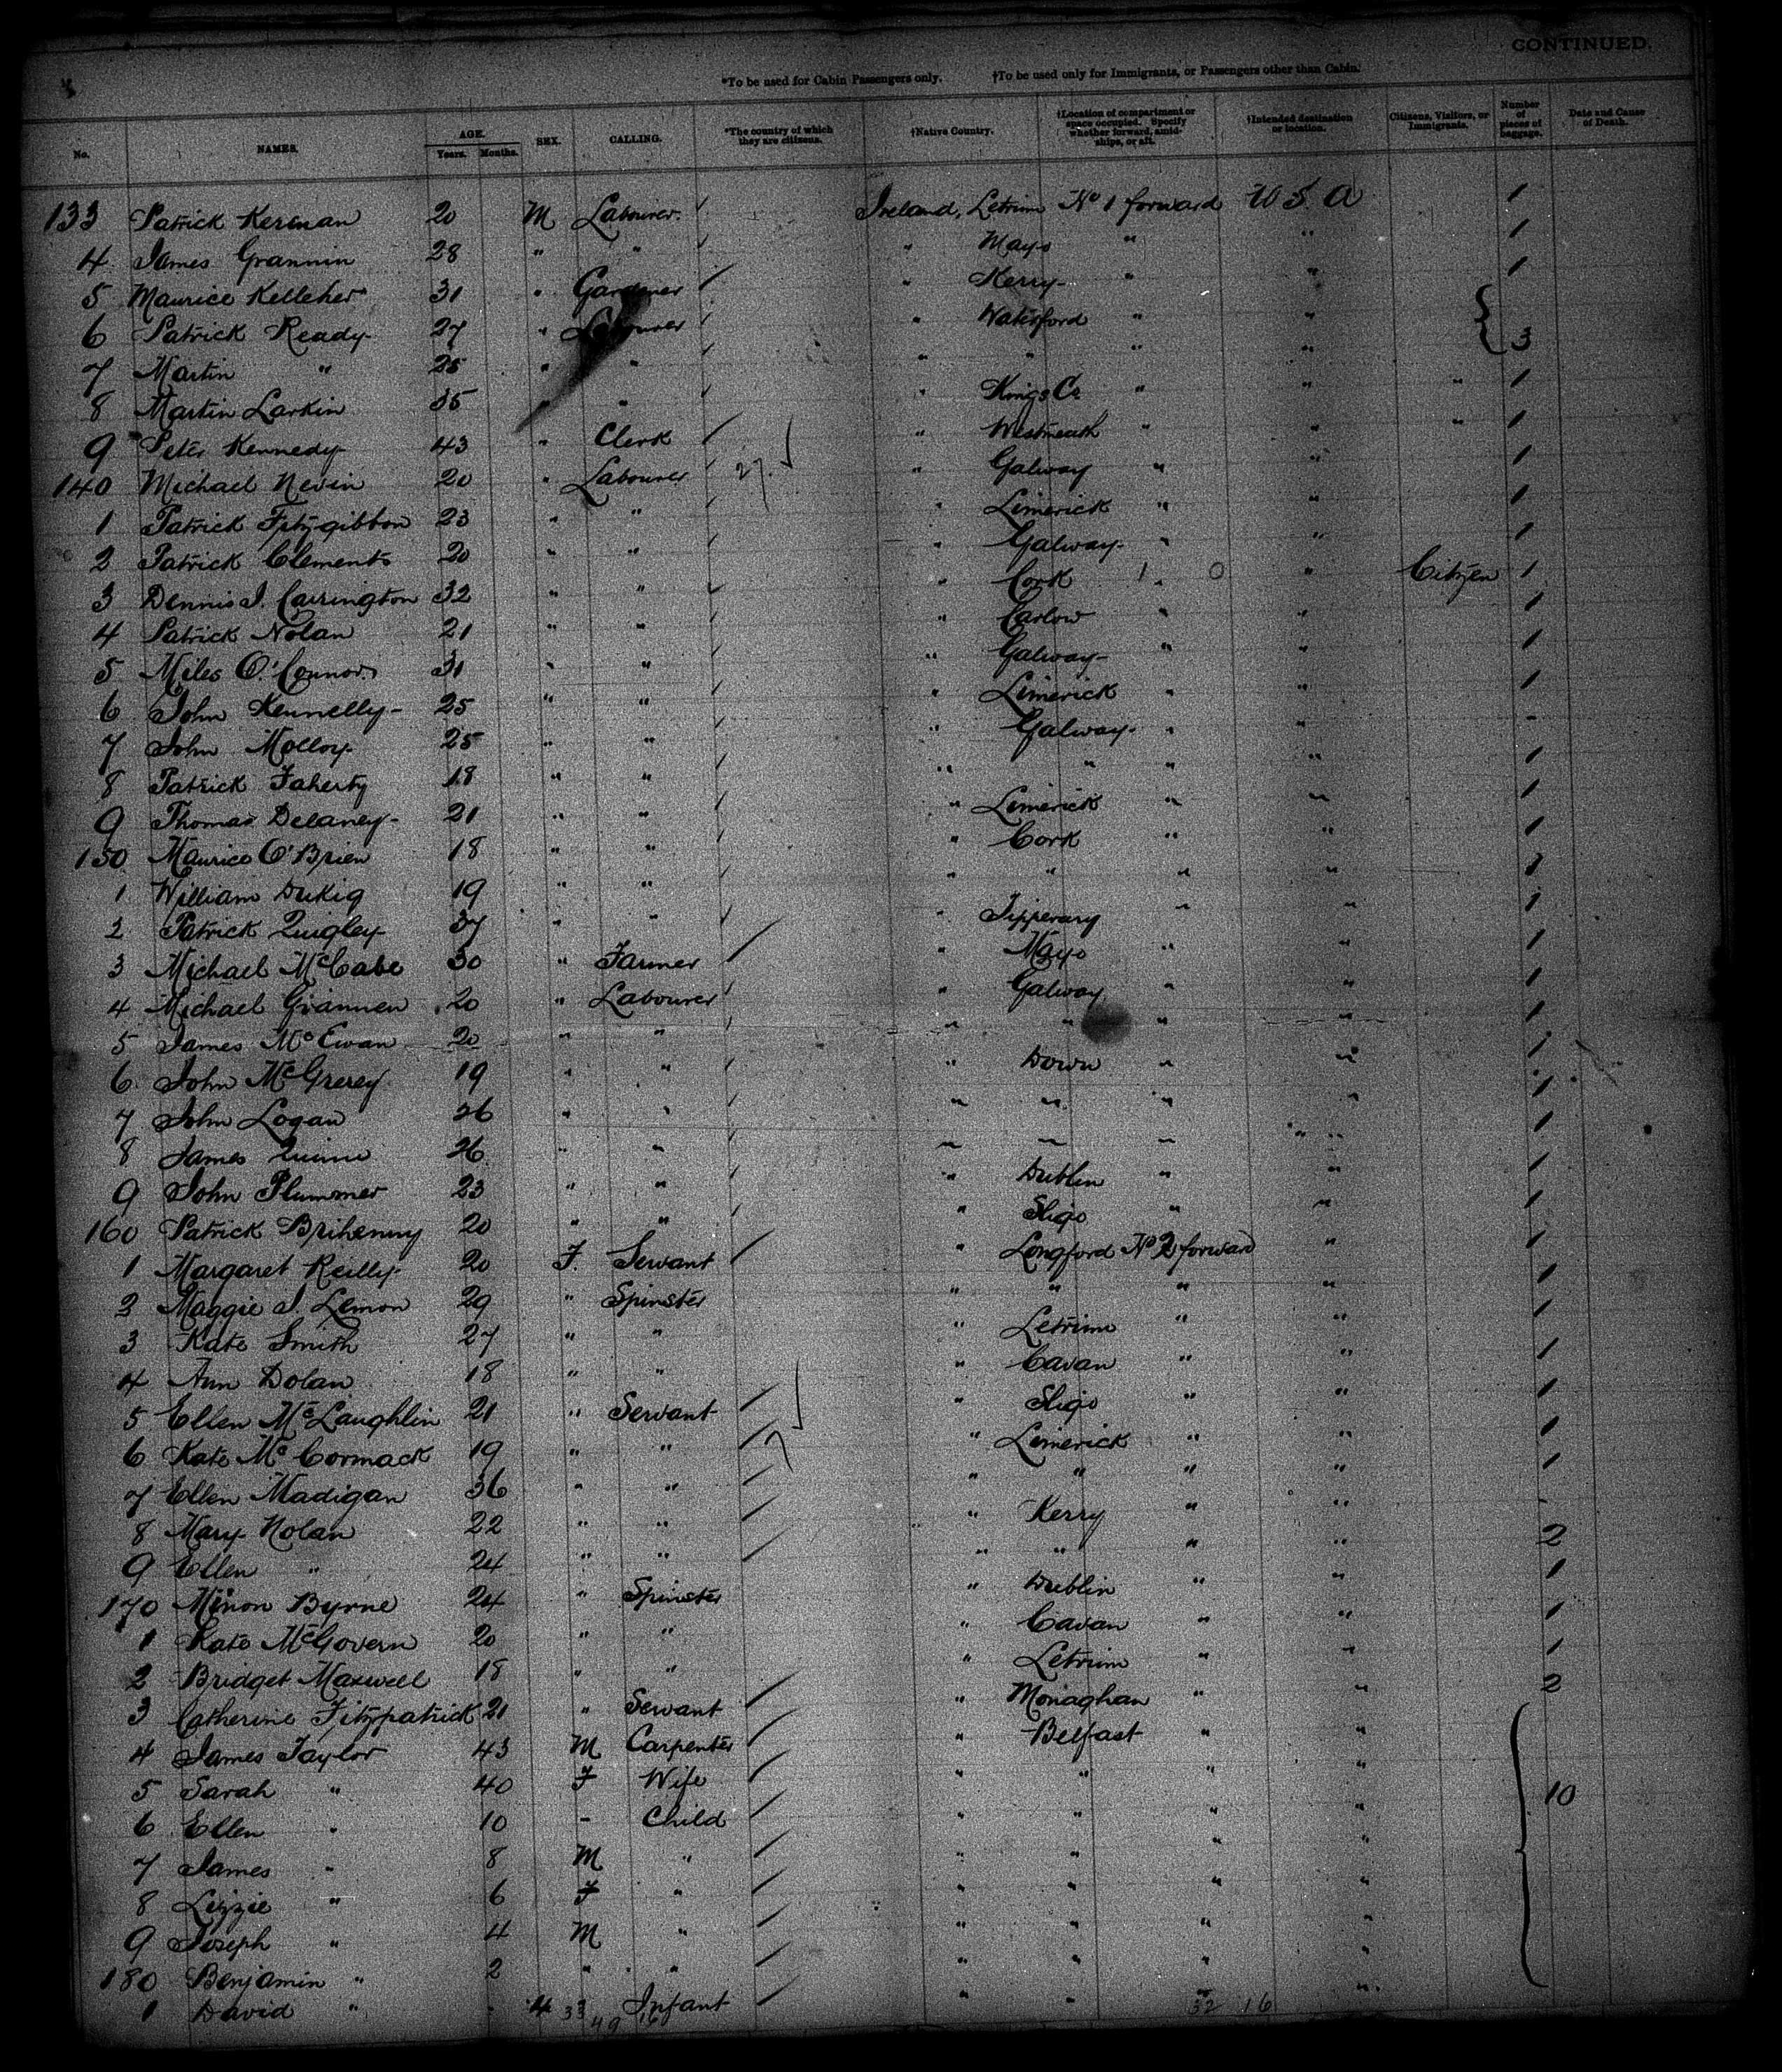 CONTINUED.
*To be used for Cabin Passengers only. †To be used only for Immigrants, or Passengers other than Cabin.
No. NAMES. AGE. Years. Months. SEX. CALLING. *The country of which they are citizens. †Native Country. †Location of compartment or space occupied. Specify whether forward, amidships, or aft. †Intended destination or location. Citizens, Visitors, or Immigrants. Number of pieces of baggage. Date and Cause of Death.
133 Patrick Kernan 20 M Labourer. Ireland, Letrim No 1 forward U S. A 1
4 James Grannin 28 " " " Mayo " " 1
5 Maurice Kelleher 31 " Gardener " Kerry " " 1
6 Patrick Ready 27 " Labourer " Waterford " " { 3
7 Martin " 25 " " " " " "
8 Martin Larkin 35 " " " Kings Co " " " 1
9 Peter Kennedy 43 " Clerk " Westmeath " " " 1
140 Michael Nevin 20 " Labourer " Galway " " 1
1 Patrick Fitzgibbon 23 " " " Limerick " " 1
2 Patrick Clements 20 " " " Galway " " 1
3 Dennis J. Carrington 32 " " " Cork " " Citizen 1
4 Patrick Nolan 21 " " " Carlow " " 1
5 Miles O'Connor 31 " " " Galway " " 1
6 John Kennelly 25 " " " Limerick " " 1
7 John Molloy 25 " " " Galway " " -
8 Patrick Faherty 18 " " " " " " 1
9 Thomas Delaney 21 " " " Limerick " " 1
150 Maurice O'Brien 18 " " " Cork " " 1
1 William 19 " " " " " " 1
2 Patrick Quigley 37 " " " Tipperary " " 1
3 Michael McCabe 30 " Farmer " Mayo " " 1
4 Michael Giannen 20 " Labourer " Galway " " 1
5 James McEwan 20 " " " " " " 1
6 John McGrerey 19 " " " Down " " 1
7 John Logan 26 " " " " " " 1
8 James Quinn 26 " " " " " " 1
9 John Plummer 23 " " " Dublin " " 1
160 Patrick Brihenny 20 " " " Sligo " " 1
1 Margaret Reilly 20 F. Servant " Longford No 2 forward " 1
2 Maggie J. Lemon 29 " Spinster " " " " 1
3 Kate Smith 27 " " " Letrim " " 1
4 Ann Dolan 18 " " " Cavan " " 1
5 Ellen McLaughlin 21 " Servant " Sligo " " 1
6 Kate McCormack 19 " " " Limerick " " 1
7 Ellen Madigan 36 " " " " " " 1
8 Mary Nolan 22 " " " Kerry " " -
9 Ellen " 24 " " " " " " 2
170 Minon Byrne 24 " Spinster " Dublin " " 1
1 Kate McGovern 20 " " " Cavan " " 1
2 Bridget Maxwell 18 " " " Letrim " " 1
3 Catherine Fitzpatrick 21 " Servant " Monaghan " " 2
4 James Taylor 43 M Carpenter " Belfast " "
5 Sarah " 40 F Wife " " " " 10
6 Ellen " 10 - Child " " " "
7 James " 8 M " " " " "
8 Lizzie " 6 F " " " " "
9 Joseph " 4 M " " " " "
180 Benjamin " 2 " " " " " "
1 David " 4 33 Infant " " 32 16 "
49 16